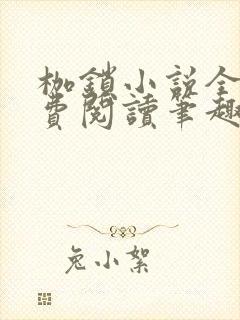 枷鎖小說全
費閱讀筆趣
兔小絮